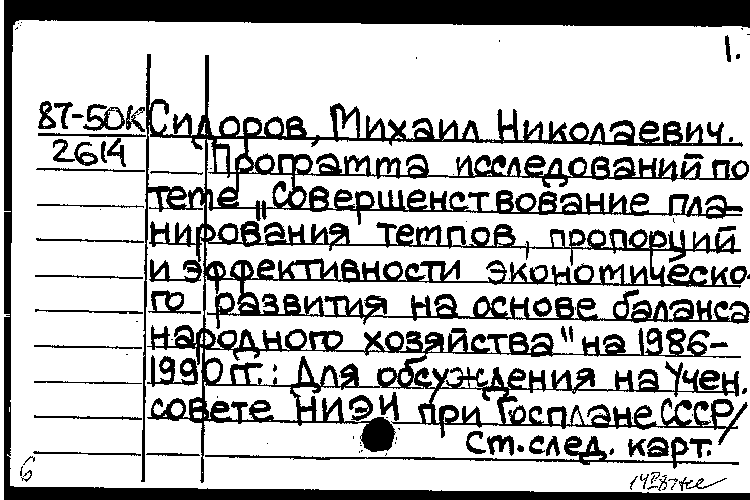 1.
87-50К Сидоров, Михаил Николаевич.
2614 Программа исследований по
теме "Совершенствование пла-
нирования темпов, пропорций
и эффективности экономическо-
го развития на основе баланса
народного хозяйства" на 1986-
1990 гг.: Для обсуждения на Учен.
совете НИЭИ при Госплане СССР/
См. след. карт.
6